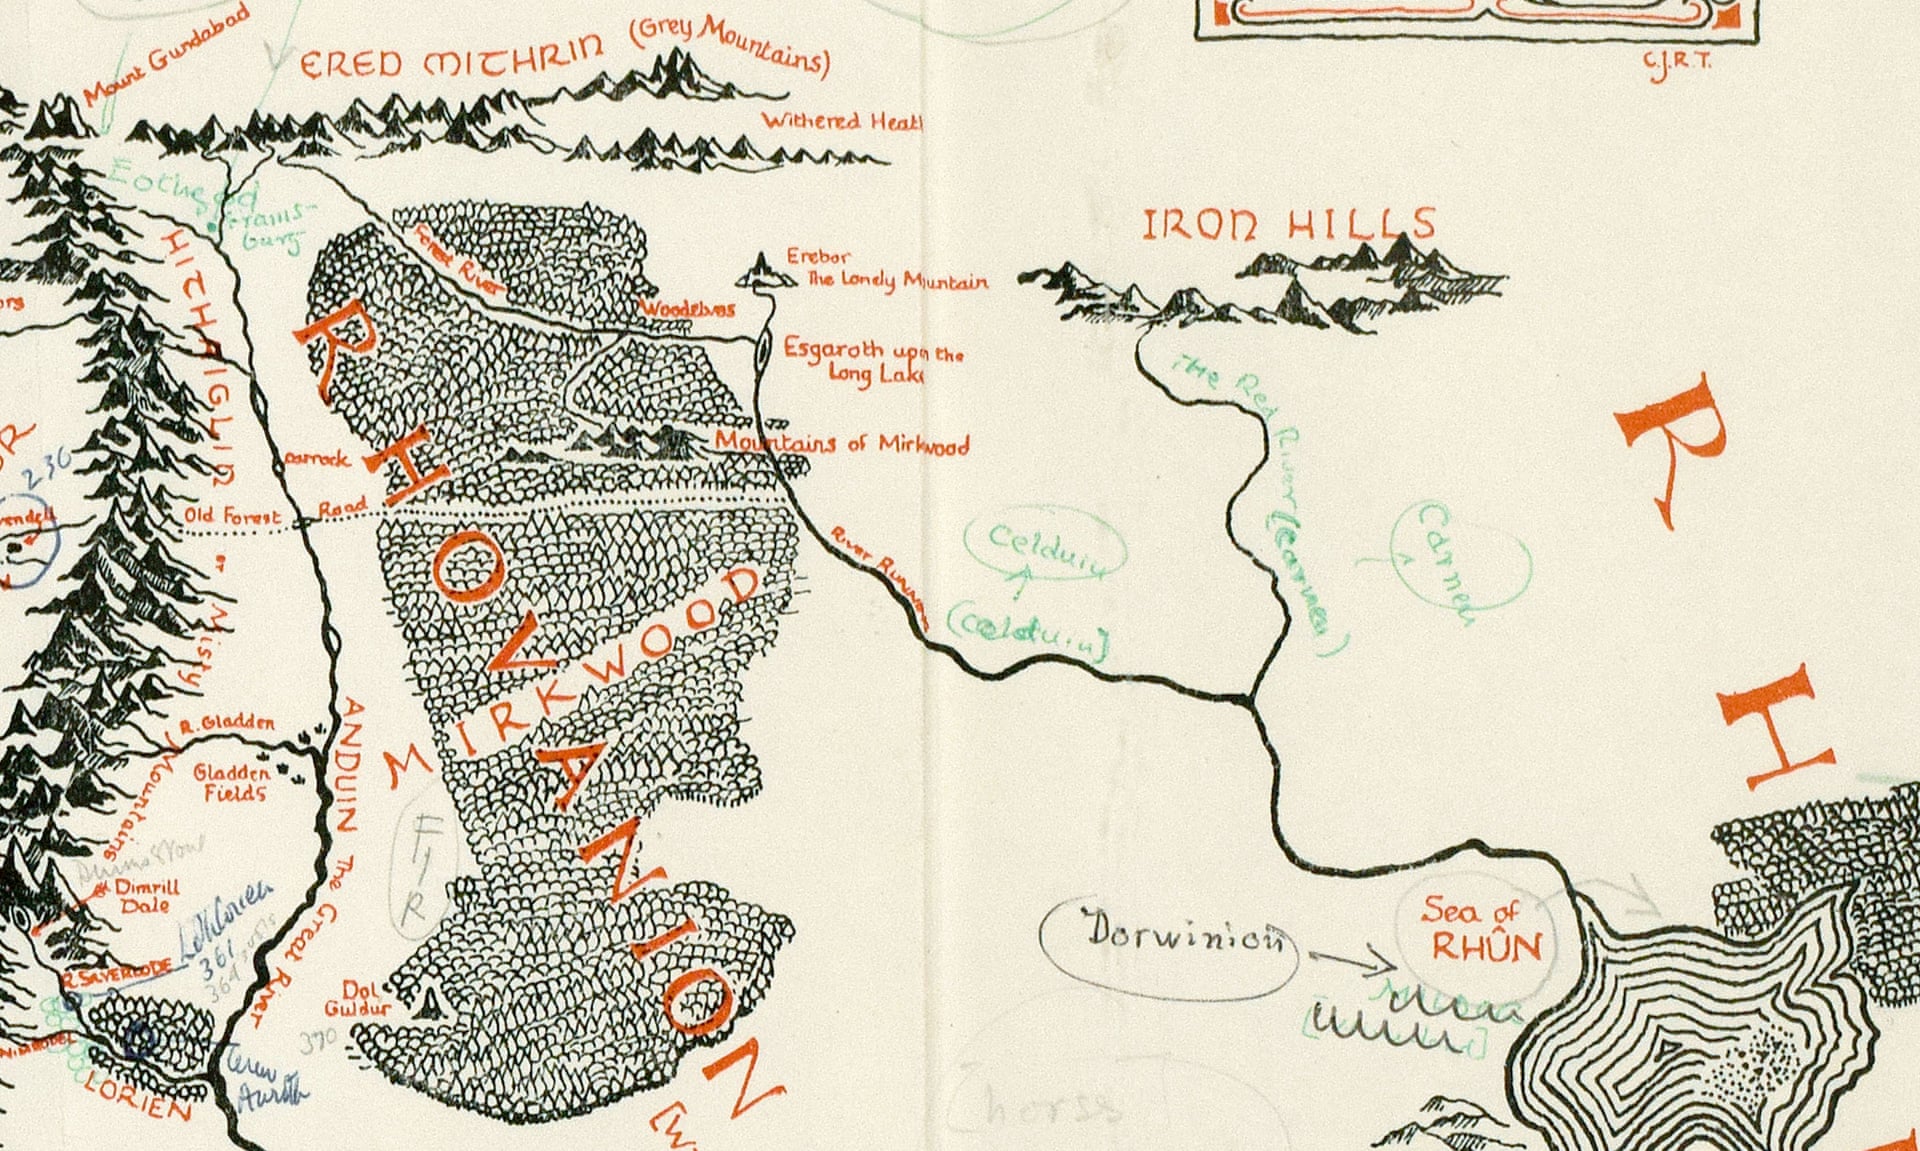 Mount Gundabad
ERED MITHRIN (Grey Mountains)
C.J.R.T.
Withered Heath
Eotheod
Frams-
burg
HITHAIGLIN or Misty Mountains
Forest River
Erebor
The Lonely Mountain
IRON HILLS
Woodelves
Esgaroth upon the
Long Lake
The Red River (Carnen)
Carnen
R
H
RHOVANION
Mountains of Mirkwood
236
Carrock
Old Forest Road
River Running
Celduin
(Celduin)
MIRKWOOD
R. Gladden
Gladden
Fields
ANDUIN The Great River
FIR
Dimrill
Dale
Lothlorien
361
R. SILVERLODE
Dol
Guldur
370
NIMRODEL
LORIEN
Dorwinion
Sea of
RHÛN
horse